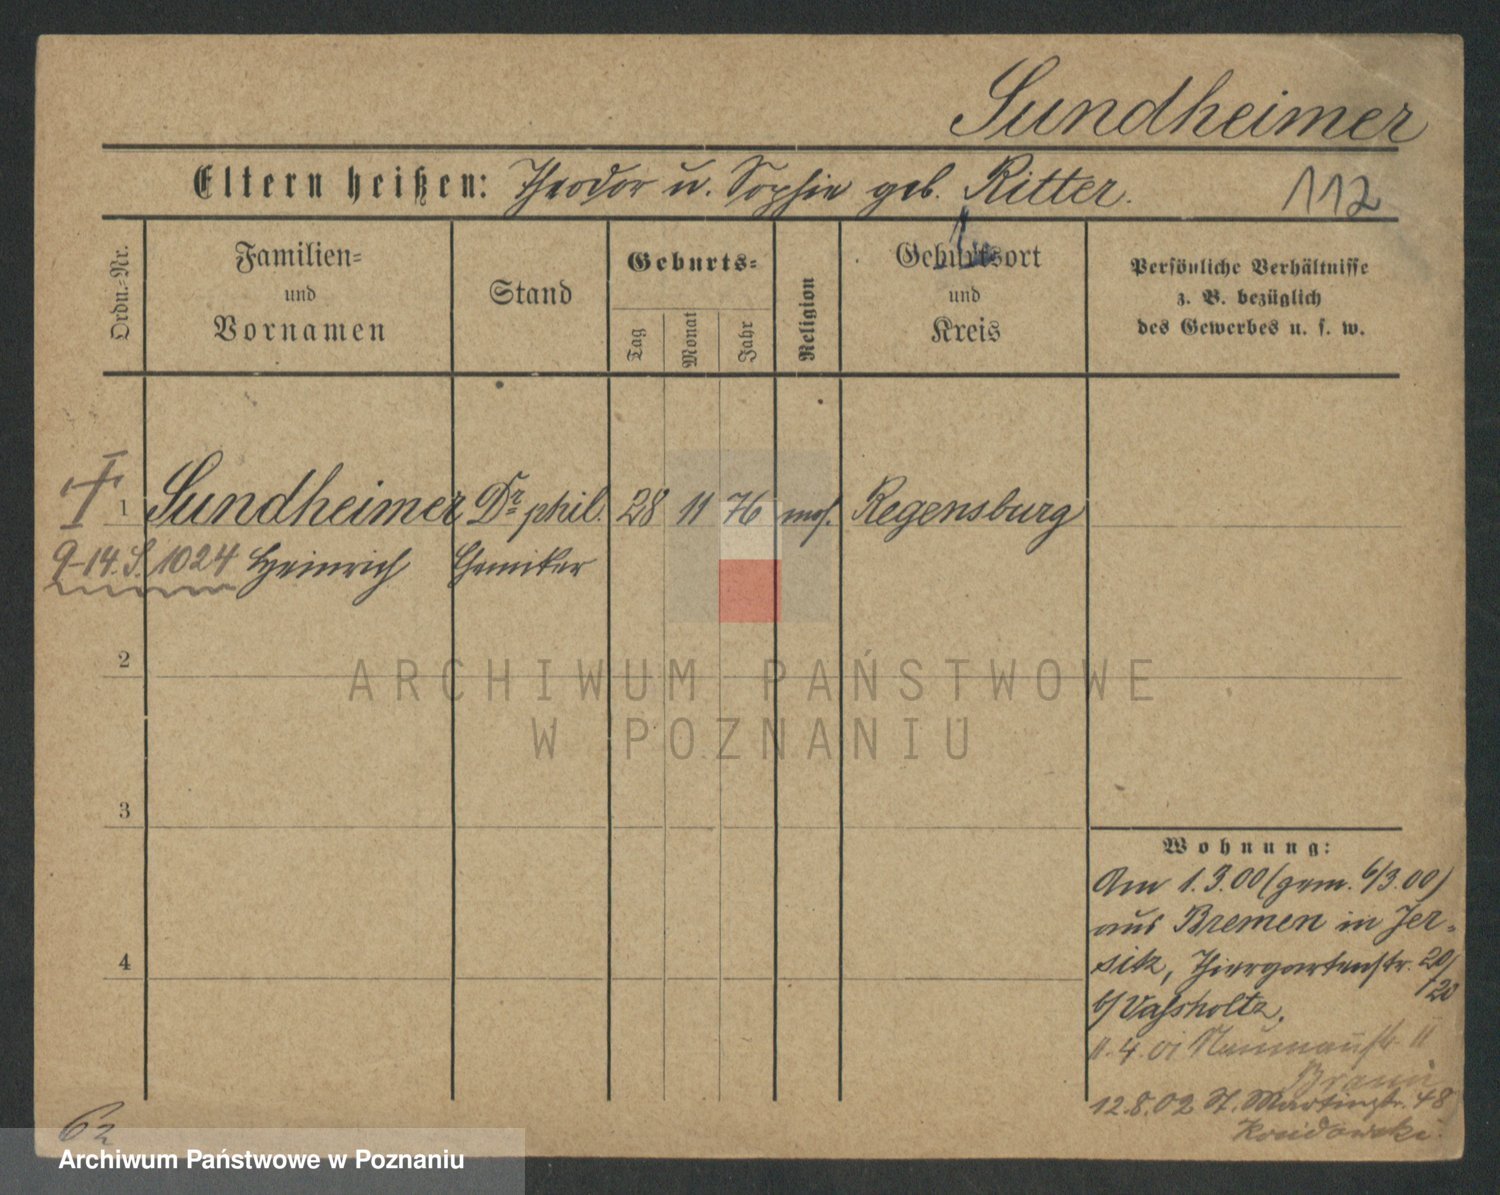 Sundheimer
Eltern heißen: Theodor u. Sophie geb. Ritter.
112
Ordn.-Nr.
Familien-
und
Vornamen
Stand
Geburts-
Tag
Monat
Jahr
Religion
Geburtsort
und
Kreis
Persönliche Verhältnisse
z. B. bezüglich
des Gewerbes u. s. w.
1 Sundheimer Dr. phil. 28 11 76 mos. Regensburg
9-14. S. 1024 Heinrich Chemiker
2
3
4
Wohnung:
Am 1.3.00 (gem. 6/3.00)
aus Bremen in Jer-
sitz, Thiergartenstr. 20/
20
b/
11.4.01 Naumannstr. 11
12.8.02 St. Martinstr. 48
62
ARCHIWUM PAŃSTWOWE
W POZNANIU
Archiwum Państwowe w Poznaniu